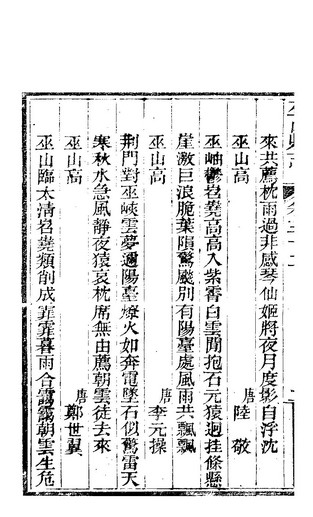 來共薦枕雨過非感琴仙姬將夜月度影自浮沈
巫山高 唐 陸敬
巫岫鬱岧嶤高高入紫霄白雲閒抱石元猿迥挂條懸
崖激巨浪脆葉隕驚飈別有陽臺處風雨共飄飄
巫山高 唐 李元操
荆門對巫峽雲夢邇陽臺燎火如奔電墜石似驚雷天
寒秋水急風靜夜猿哀枕席無由薦朝雲徒去來
巫山高 唐 鄭世翼
巫山臨太清岧嶤類削成霏霏暮雨合靄靄朝雲生危